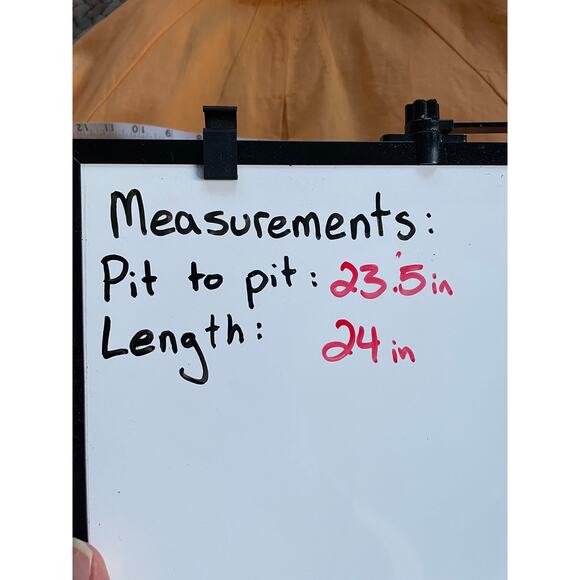 12 11 10 9
Measurements:
Pit to pit: 23.5 in
Length: 24 in